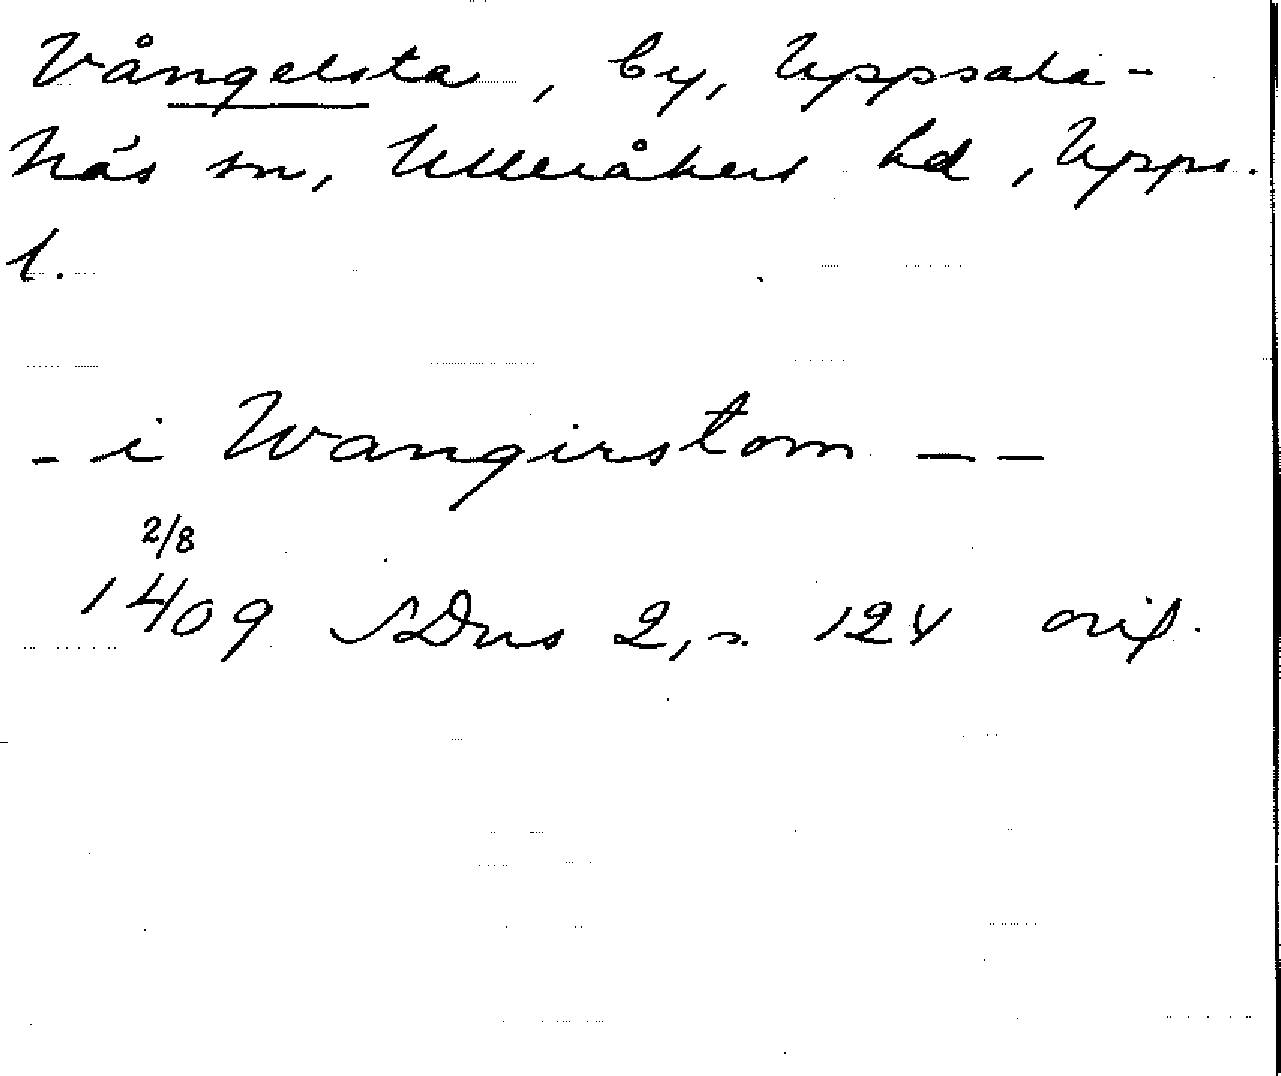 Vångelsta, by, Uppsala-
Näs sn, Ulleråkers hd, Upps.
l.
- i Wangirstom - -
2/8
1409 SDns 2, s. 124 orig.